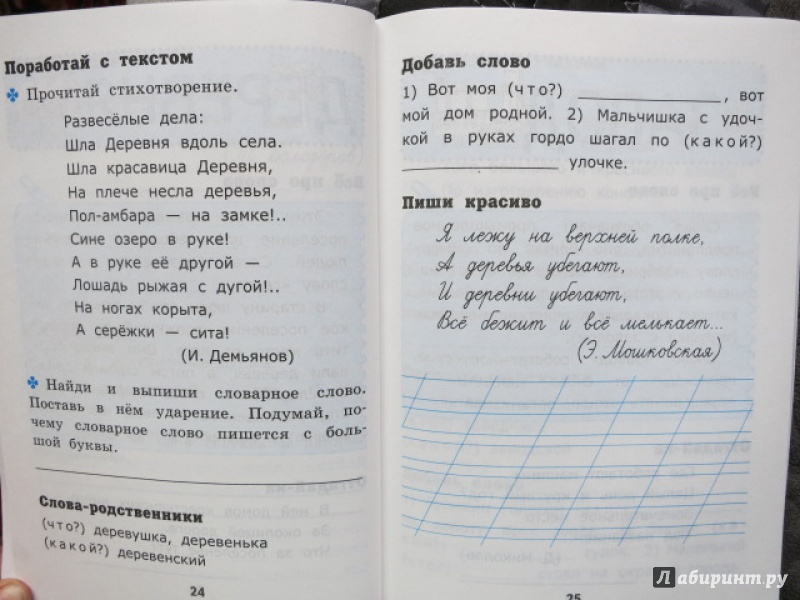 Поработай с текстом
Прочитай стихотворение.
Развесёлые дела:
Шла Деревня вдоль села.
Шла красавица Деревня,
На плече несла деревья,
Пол-амбара — на замке!..
Сине озеро в руке!
А в руке её другой —
Лошадь рыжая с дугой!..
На ногах корыта,
А серёжки — сита!
(И. Демьянов)
Найди и выпиши словарное слово.
Поставь в нём ударение. Подумай, по-
чему словарное слово пишется с боль-
шой буквы.
Слова-родственники
(что?) деревушка, деревенька
(какой?) деревенский
24
Добавь слово
1) Вот моя (что?) ____________, вот
мой дом родной. 2) Мальчишка с удоч-
кой в руках гордо шагал по (какой?)
____________ улочке.
Пиши красиво
Я лежу на верхней полке,
А деревья убегают,
И деревни убегают,
Всё бежит и всё мелькает...
(Э. Мошковская)
25
Лабиринт.ру